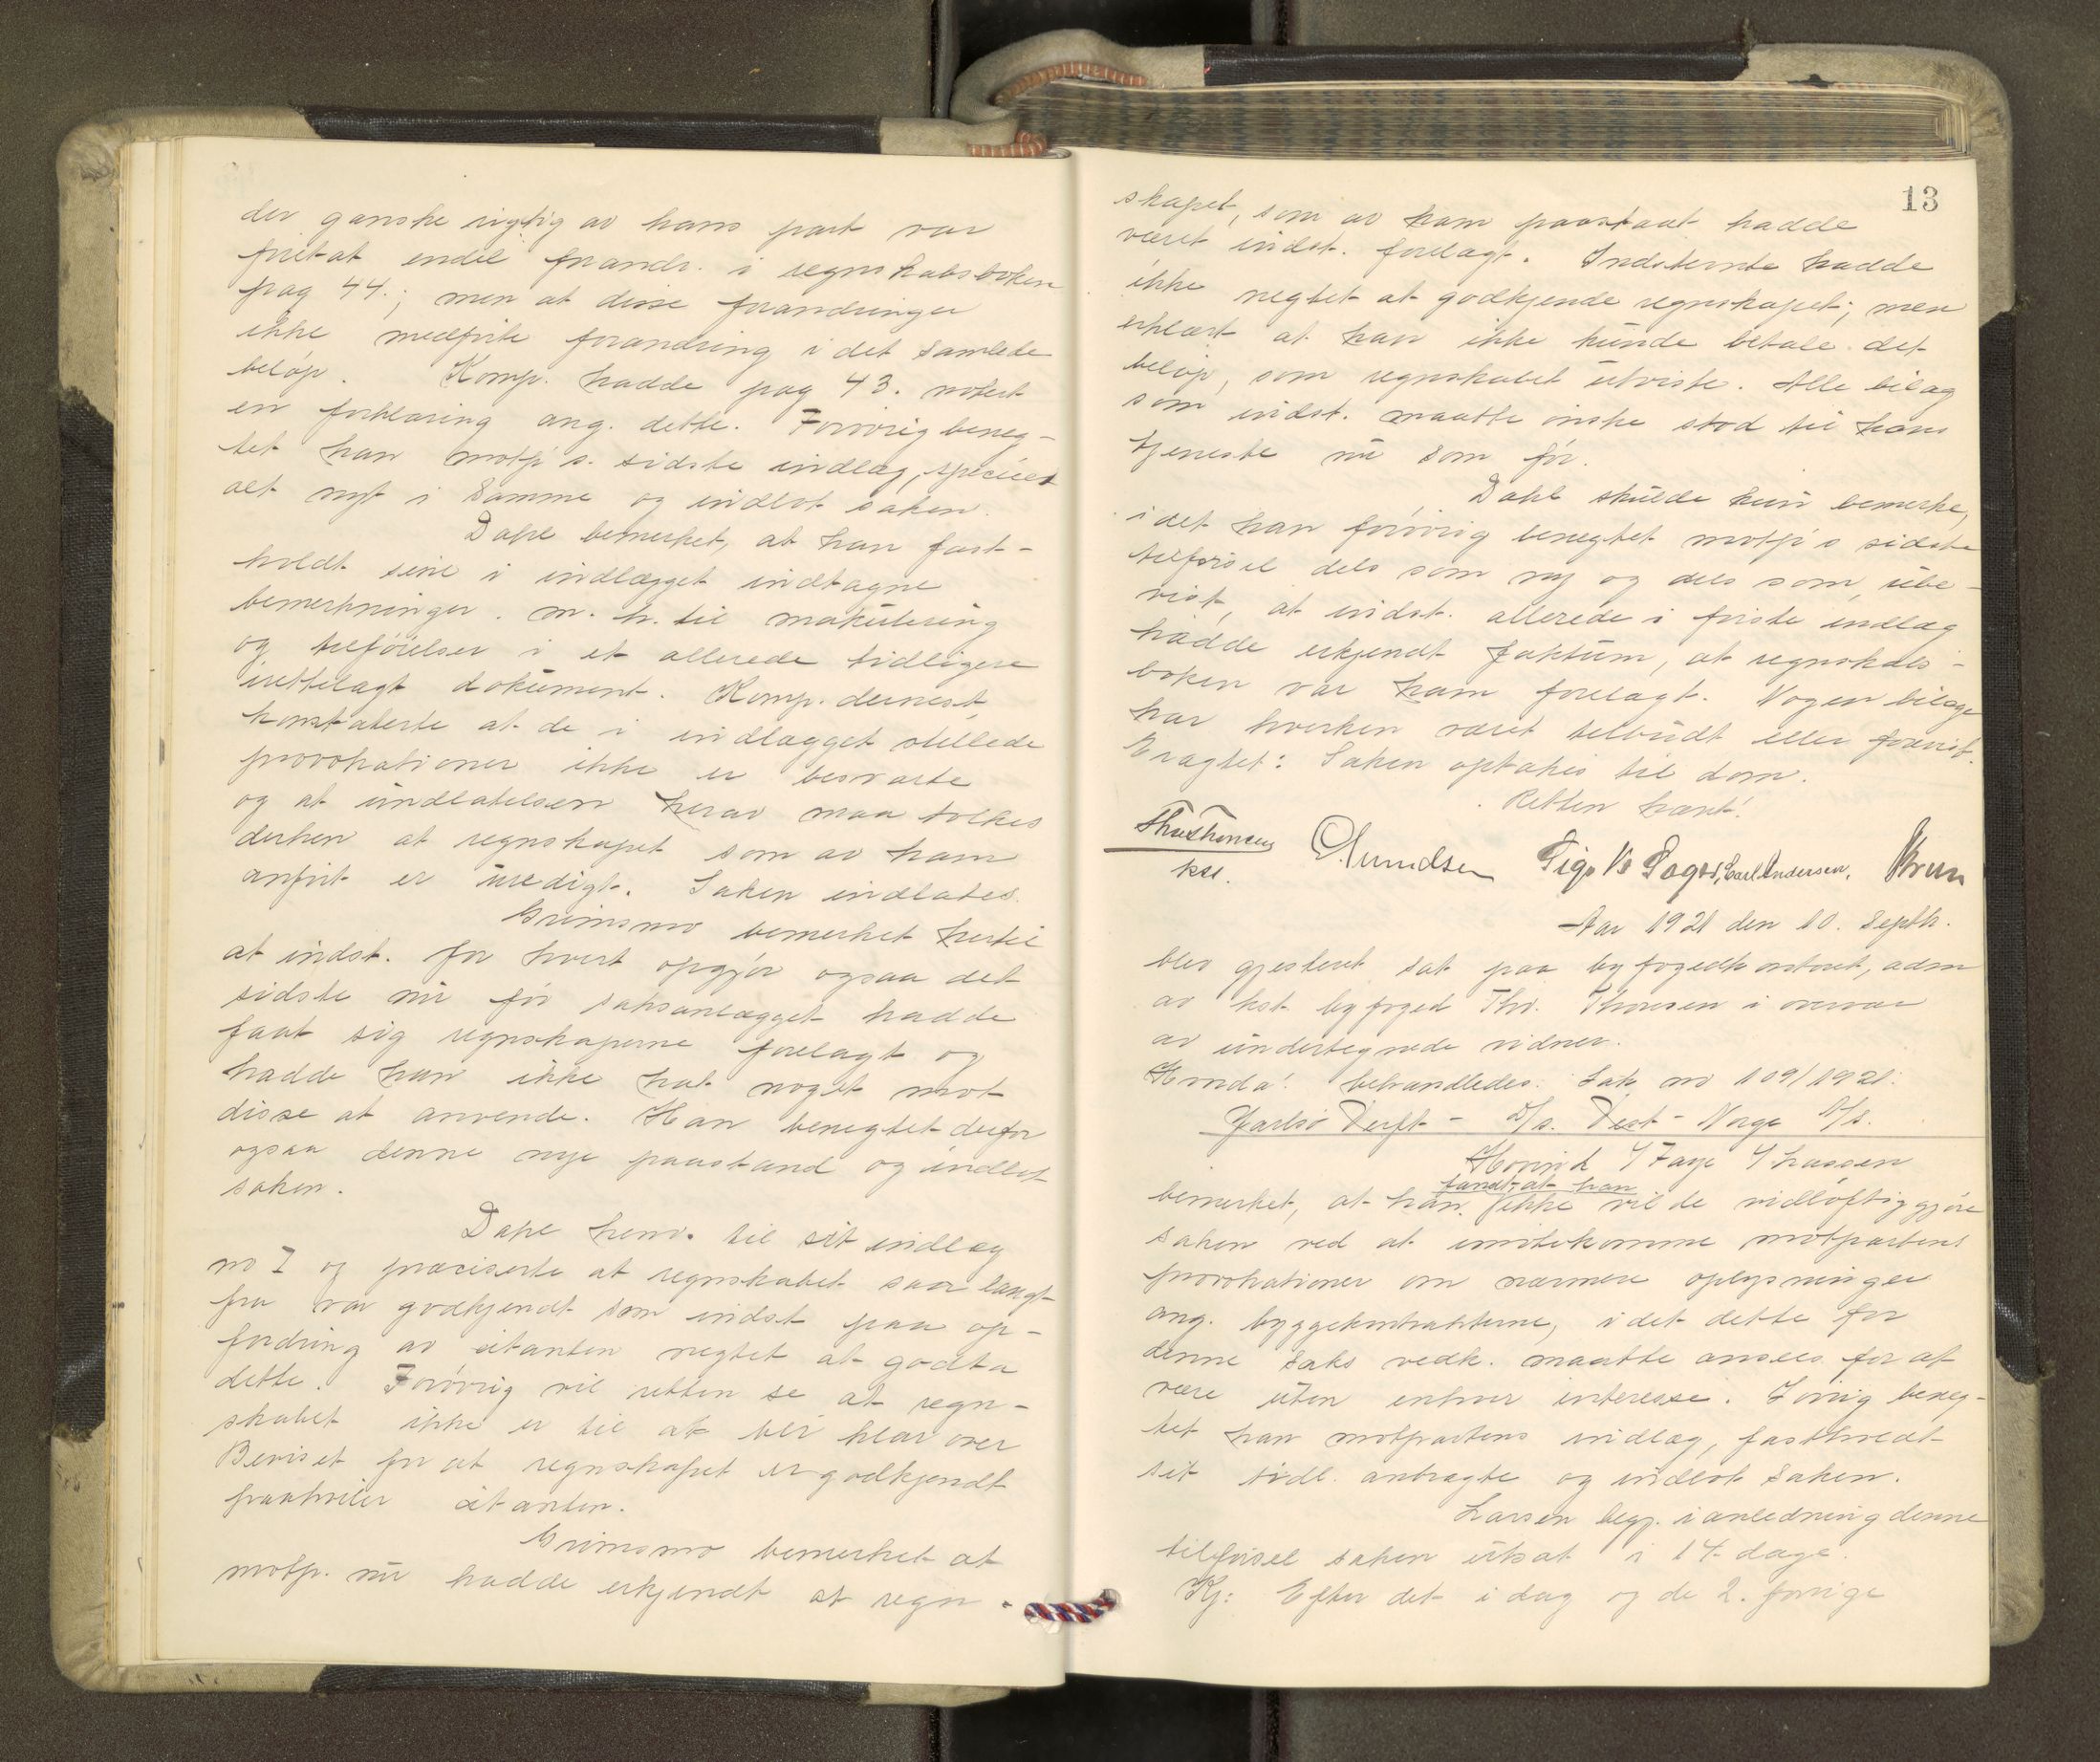 der ganske rigtig av hans part var
ført at endel forandr. i regnskabsboken
pag 44.; men at disse forandringer
ikke medførte forandring i det samlede
beløp. Komp. hadde pag 43. notert
en forklaring ang. dette. Forøvrig beneg-
tet han motp's. sidste indlæg, specielt
alt nyt i samme og indlot saken.
Dahl bemerket, at han fast-
holdt sine i indlægget indtagne
bemerkninger m. h. til makulering
og tilføielser i et allerede tidligere
irettelagt dokument. Komp. dernest
konstaterte at de i indlægget stillede
provokationer ikke er besvarte
og at undlatelsen herav maa tolkes
derhen at regnskapet som av ham
anført er uredigt. Saken indlates.
Grimsmo bemerket hertil
at indst. for hvert opgjør ogsaa det
sidste nu før saksanlægget hadde
faat sig regnskaperne forelagt og
hadde han ikke hat noget mot
disse at anvende. Han benegtet derfor
ogsaa denne nye paastand og indlot
saken.
Dahl henv. til sit indlæg
no I og præciserte at regnskabet saa langt
fra var godkjendt som indst paa op-
fordring av citanten negtet at godta
dette. Forøvrig vil retten se at regn-
skabet ikke er til at bli klar over
Beviset for at regnskapet er godkjendt
paahviler citanten.
Grimsmo bemerket at
motp. nu hadde erkjendt at regn-
13
skapet, som av ham paastaat hadde
været indst. forelagt. Indstevnte hadde
ikke negtet at godkjende regnskapet; men
erklært at han ikke kunde betale det
beløp, som regnskabet utviste. Alle bilag
som indst. maatte ønske stod til hans
tjeneste nu som før.
Dahl skulde kun bemerke,
idet han forøvrig benegtet motp's sidste
tilførsel dels som ny og dels som ube-
vist, at indst. allerede i første indlæg
hadde erkjendt faktum, at regnskabs-
boken var ham forelagt. Nogen bilage
har hverken været tilbudt eller forevist.
Eragtet: Saken optakes til dom.
Retten hævet!
Thv Thoresen
kst.
Amundsen Carl Andersen,
Aar 1921 den 10. Septbr.
blev gjesteret sat paa byfogedkontoret, adm
av kst byfoged Thv. Thoresen i overvær
av undertegnede vidner.
Hvorda! behandledes. Sak no 109/1921.
Jarlsø Verft - D/s. Vest-Norge A/s.
Hovind f Faye f Lassen
fandt, at han
bemerket, at han ikke vil de vidløftiggjøre
saken ved at imøtekomme motpartens
provokationer om nærmere oplysninger
ang. byggekontrakterne, idet dette for
denne saks vedk. maatte ansees for at
være uten enhver interesse. Iøvrig beneg-
tet han motpartens indlæg, fastholdt
sit tidl. antragte og indlot saken.
Larsen begj. i anledning denne
tilførsel saken utsat i 14 dage.
Kj: Efter det i dag og de 2. forrige